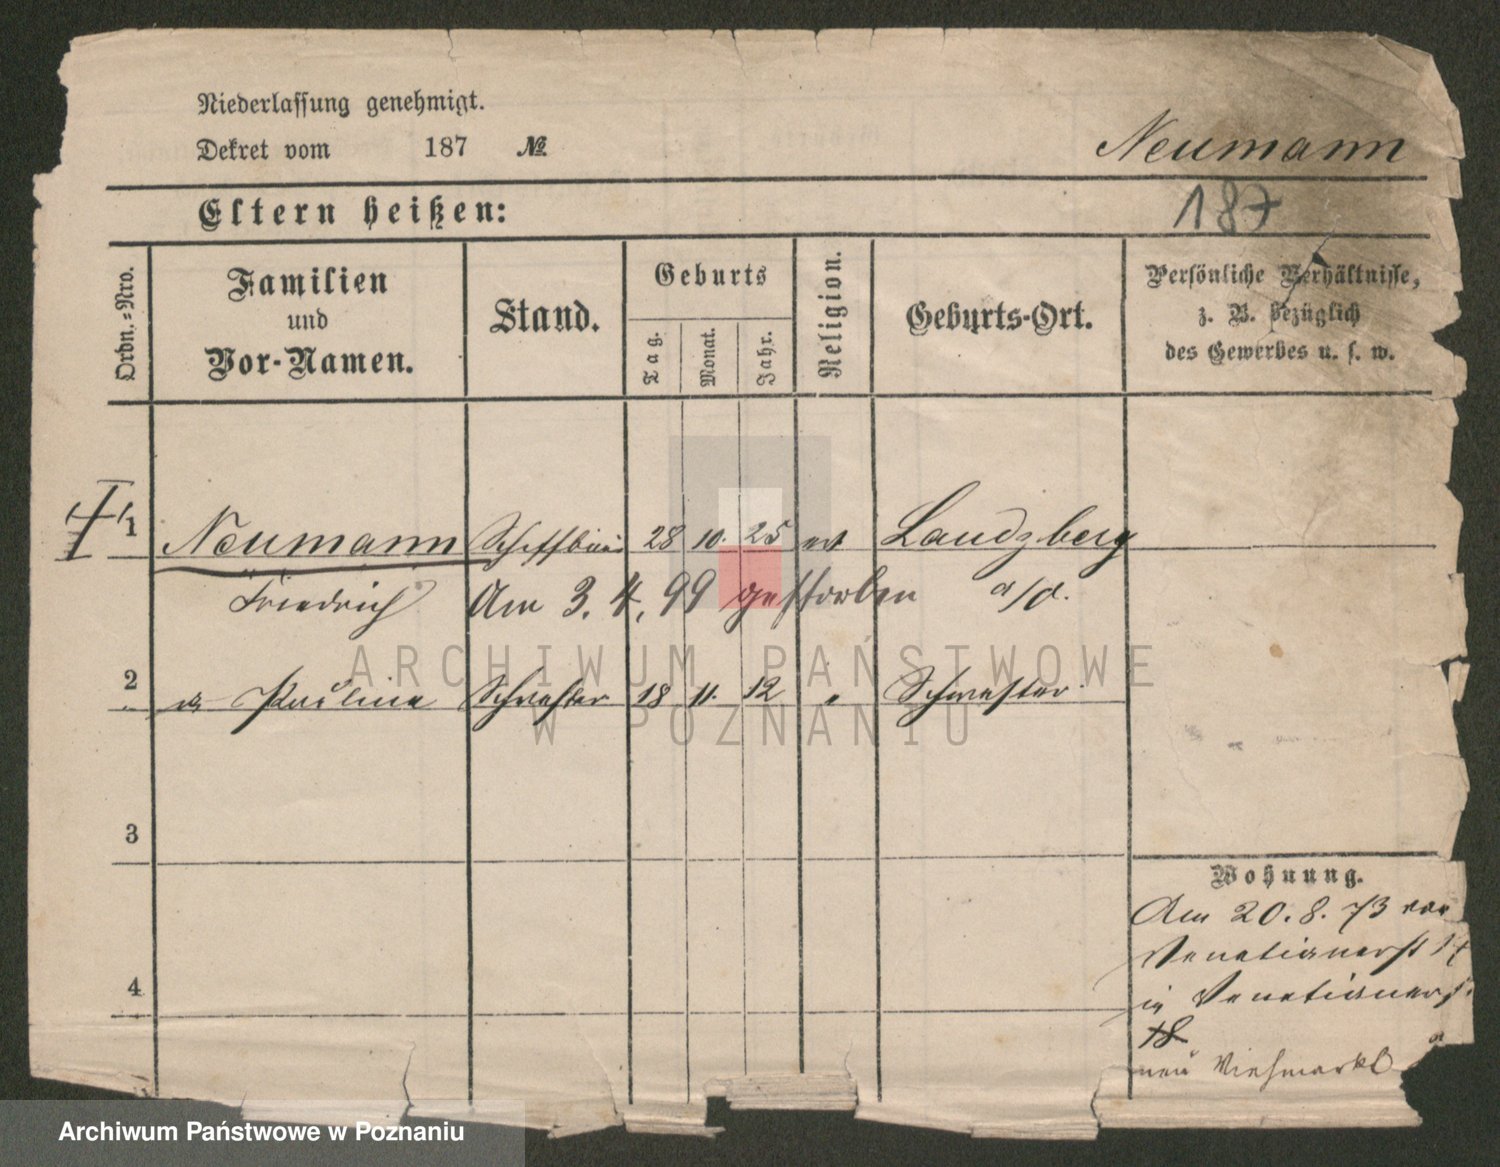 Niederlassung genehmigt.
Dekret vom 187 №
Neumann
187
Eltern heißen:
Ordn.-Nro.
Familien
und
Vor-Namen.
Stand.
Geburts
Tag.
Monat.
Jahr.
Religion.
Geburts-Ort.
Persönliche Verhältnisse,
z. B. bezüglich
des Gewerbes u. s. w.
1 Neumann 28 10. 25 Landsberg
Friedrich Am 3. 4. 99 gestorben a/d.
2 Pauline Schwester 18 11. 12 " Schwester
3
4
Wohnung.
Am 20. 8. 73 von
Venetianerst 17
in Venetianerst.
18
neu Viehmarkt
ARCHIWUM PAŃSTWOWE
W POZNANIU
Archiwum Państwowe w Poznaniu